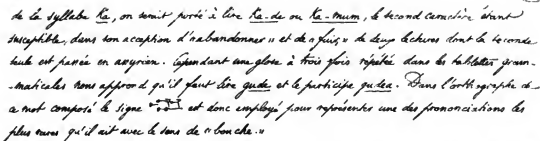 de la syllabe Ka, on serait porté à lire Ka-de ou Ka-mum, le second caractère étant
susceptible, dans son acception d'« abandonner » et de « fuir » de deux lectures dont la seconde
seule est passée en assyrien. Cependant une glose à trois fois répétée dans les tablettes gram-
-maticales nous apprend qu'il faut lire gude et le participe gudea. Dans l'orthographe de
ce mot composé le signe est donc employé pour représenter une des prononciations les
plus rares qu'il ait avec le sens de « bouche. »